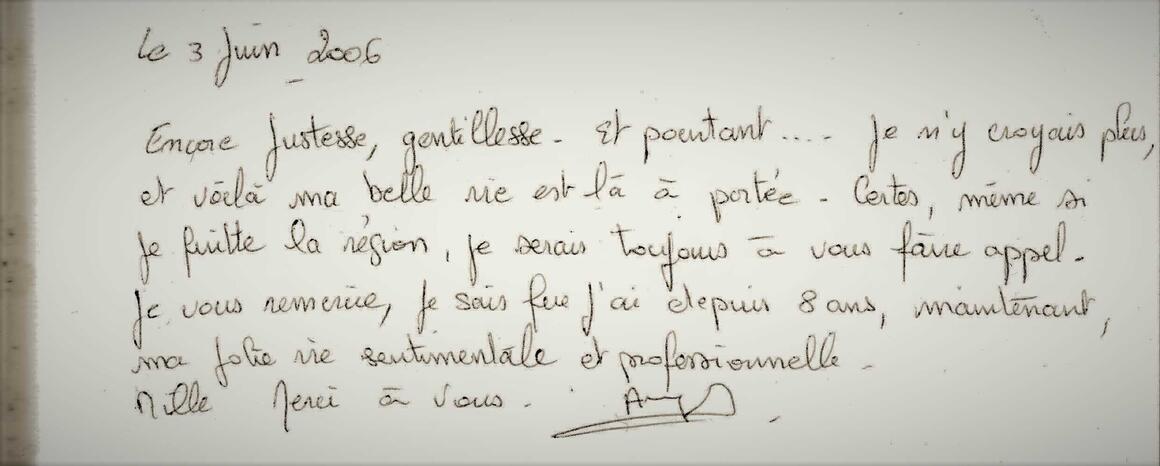 le 3 Juin 2006
Encore Justesse, gentillesse. Et pourtant.... Je n'y croyais plus,
et voilà ma belle vie est là à portée. Certes, même si
je quitte la région, je serais toujours à vous faire appel.
Je vous remercie, je sais que j'ai depuis 8 ans, maintenant,
ma jolie vie sentimentale et professionnelle.
Mille Merci à vous.